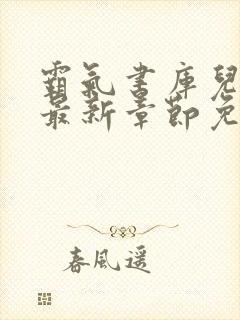 霸氣書庫兒
最新章節免
春風遥